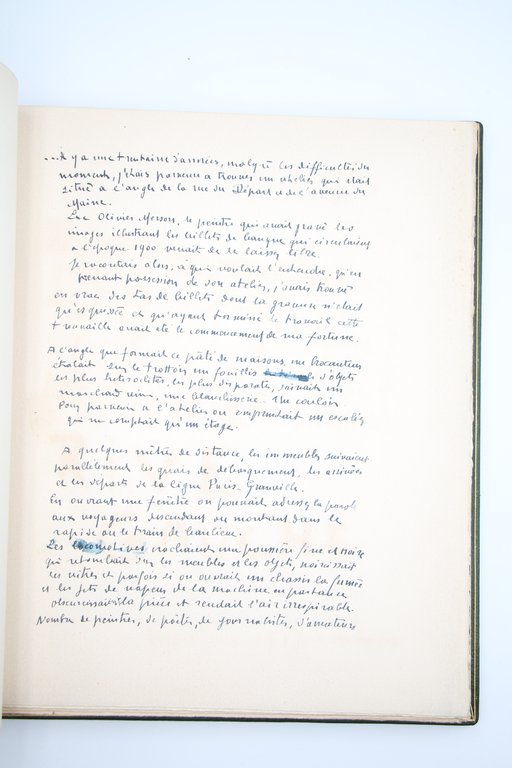 ...Il y a une trentaine d'années, malgré les difficultés du
moment, j'étais parvenu à trouver un atelier qui était
situé à l'angle de la rue du Départ et de l'avenue du
Maine.
Luc Olivier Merson, le peintre qui avait gravé les
images illustrant les billets de banque qui circulaient
à l'époque 1900 venait de le laisser libre.
Je racontais alors, à qui voulait l'entendre, qu'en
prenant possession de son atelier, j'avais trouvé
en vrac des tas de billets dont la gravure n'était
qu'esquissée et qu'ayant terminé le travail cette
trouvaille avait été le commencement de ma fortune.
A l'angle que formait ce pâté de maisons, un brocanteur
étalait sur le trottoir un fouillis d'objets
les plus hétéroclites, les plus disparates, suivait un
marchand de vins, une blanchisserie. Un couloir
Pour parvenir à l'atelier on empruntait un escalier
qui ne comptait qu'un étage.
A quelques mètres de distance, les immeubles suivaient
parallèlement les quais de débarquement, les arrivées
et les départs de la ligne Paris-Granville.
En ouvrant une fenêtre on pouvait adresser la parole
aux voyageurs descendant ou montant dans le
rapide ou le train de banlieue.
Les locomotives crachaient une poussière fine et noire
qui retombait sur les meubles et les objets, noircissait
les vitres et parfois si on ouvrait un chassis la fumée
et les jets de vapeur de la machine en partance
obscurcissait la pièce et rendait l'air irrespirable.
Nombre de peintres, de poètes, de journalistes, d'amateurs